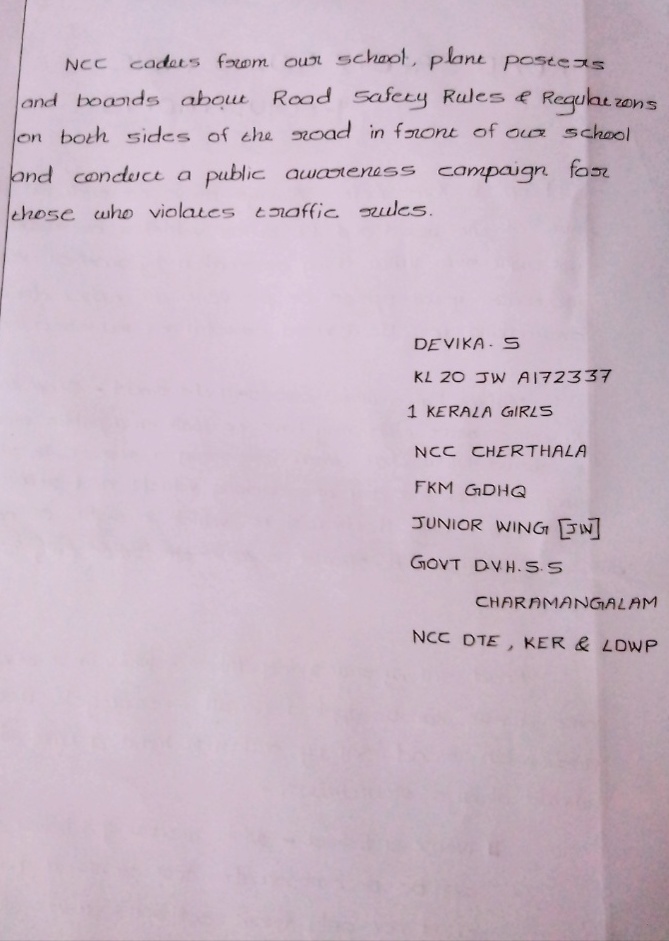 NCC cadets from our school, plant posters
and boards about Road Safety Rules & Regulations
on both sides of the road in front of our school
and conduct a public awareness campaign for
those who violates traffic rules.
DEVIKA. S
KL 20 JW A172337
1 KERALA GIRLS
NCC CHERTHALA
FKM GDHQ
JUNIOR WING [JW]
GOVT D.V.H.S.S
CHARAMANGALAM
NCC DTE, KER & LDWP